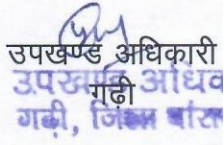 उपखण्ड अधिकारी
उपखण्ड अधिक
गढ़ी
गढ़ी, जिला बांस